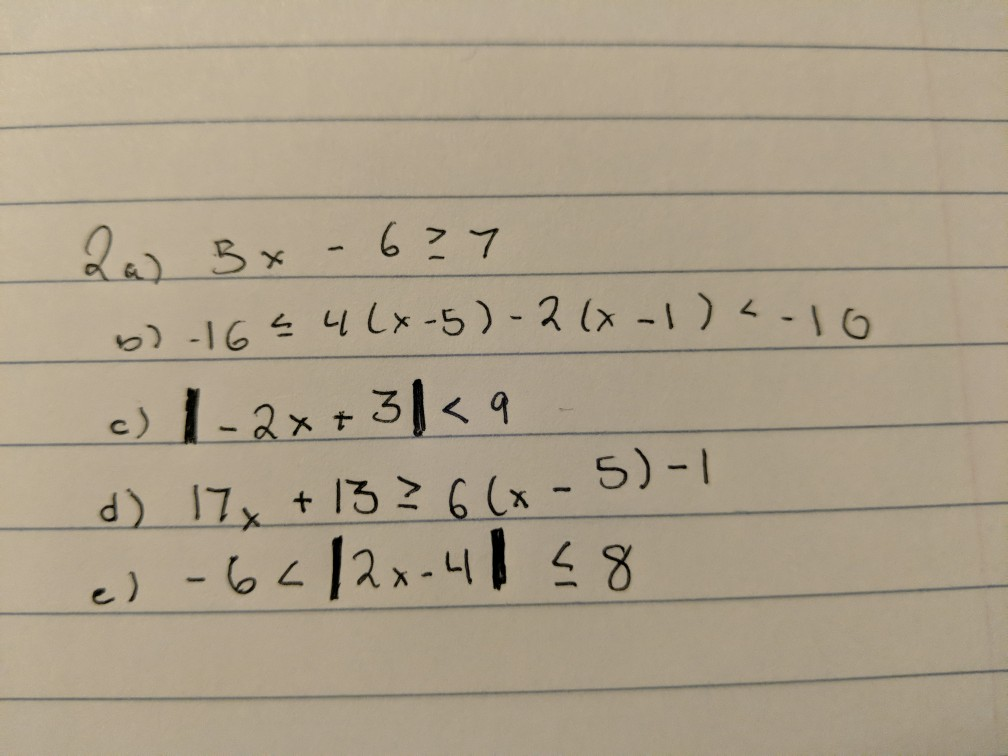 2a) 3x - 6 ≥ 7
b) -16 ≤ 4(x-5) - 2(x-1) < -10
c) |-2x + 3| < 9
d) 17x + 13 ≥ 6(x - 5) - 1
e) -6 < |2x-4| ≤ 8